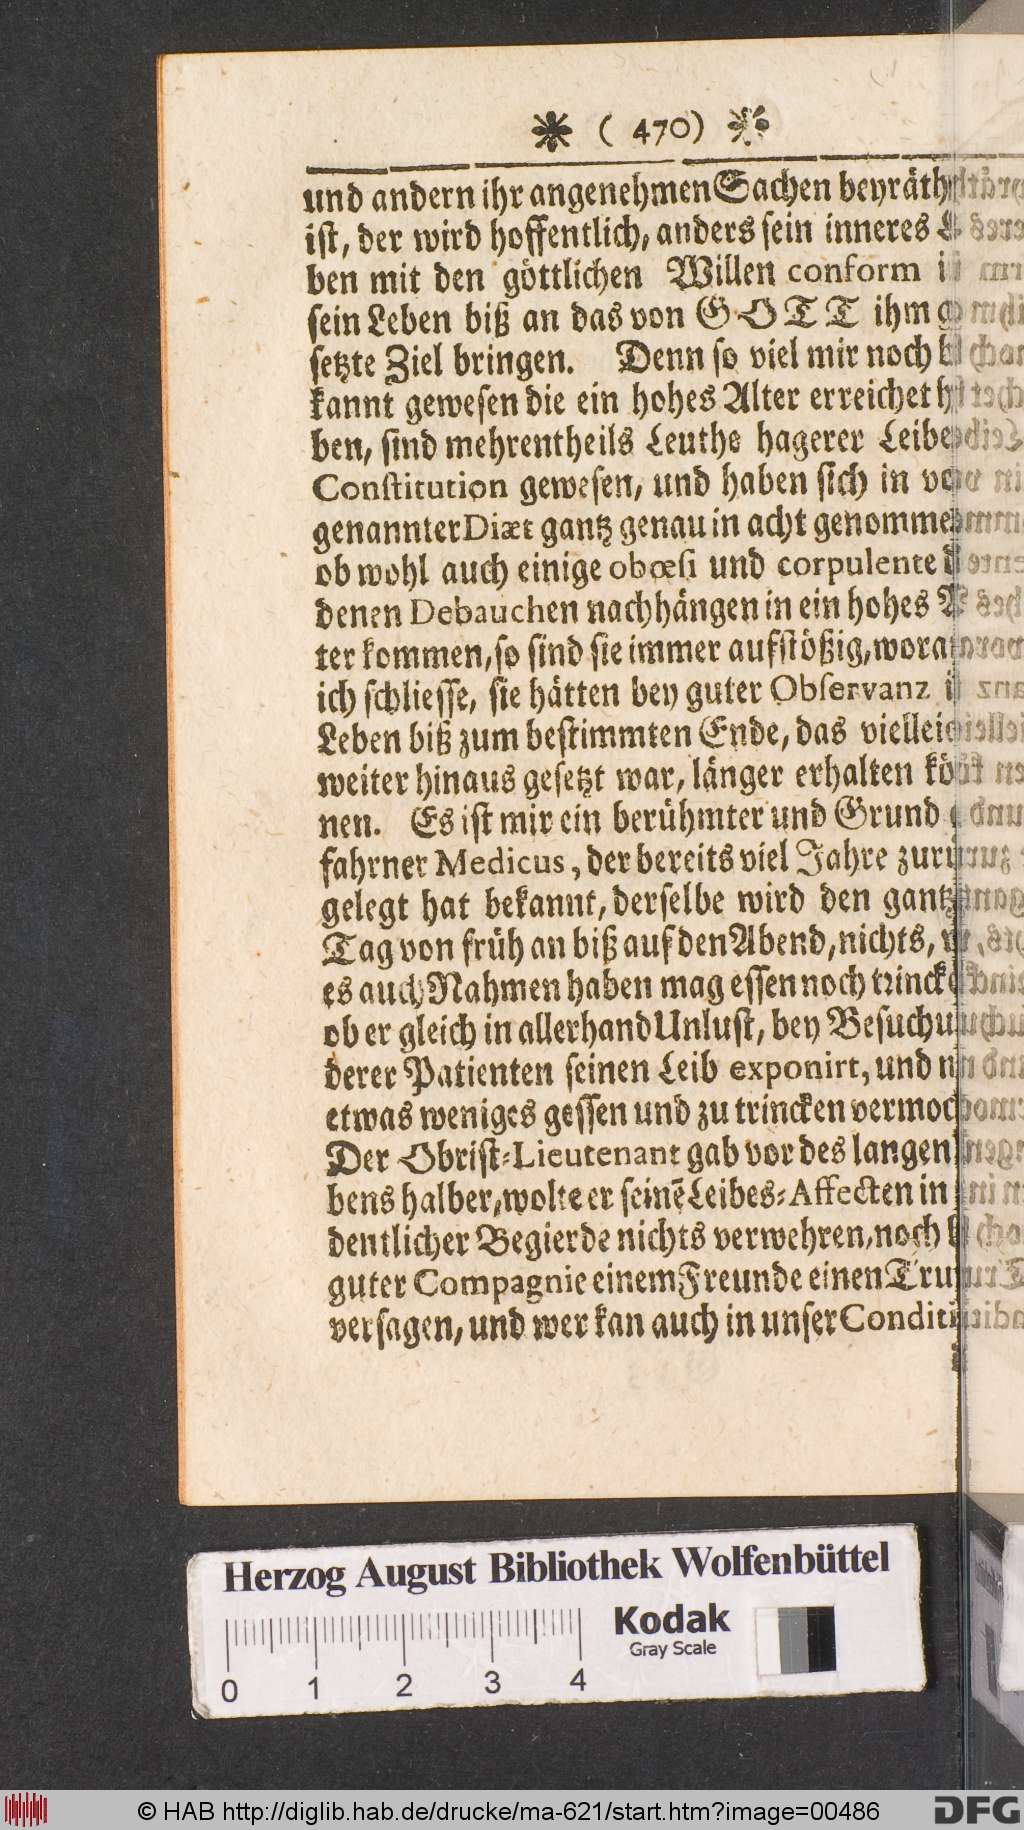 ( 470)
und andern ihr angenehmen Sachen beyräth
ist, der wird hoffentlich, anders sein inneres
ben mit den göttlichen Willen conform
sein Leben biß an das von GOTT ihm
setzte Ziel bringen. Denn so viel mir noch
kannt gewesen die ein hohes Alter erreichet
ben, sind mehrentheils Leuthe hagerer
Constitution gewesen, und haben sich in
genannter Diæt gantz genau in acht
ob wohl auch einige obœsi und corpulente
denen Debauchen nachhängen in ein hohes
ter kommen, so sind sie immer aufstößig,
ich schliesse, sie hätten bey guter Observanz
Leben biß zum bestimmten Ende, das
weiter hinaus gesetzt war, länger erhalten
nen. Es ist mir ein berühmter und Grund
fahrner Medicus, der bereits viel Jahre
gelegt hat bekannt, derselbe wird den
Tag von früh an biß auf den Abend, nichts,
es auch Nahmen haben mag essen noch
ob er gleich in allerhand Unlust, bey
derer Patienten seinen Leib exponirt, und
etwas weniges gessen und zu trincken
Der Obrist-Lieutenant gab vor des langen
bens halber, wolte er seinē Leibes-Affecten in
dentlicher Begierde nichts verwehren, noch
guter Compagnie einem Freunde einen
versagen, und wer kan auch in unser
Herzog August Bibliothek Wolfenbüttel
Kodak
Gray Scale
0 1 2 3 4
© HAB http://diglib.hab.de/drucke/ma-621/start.htm?image=00486
DFG